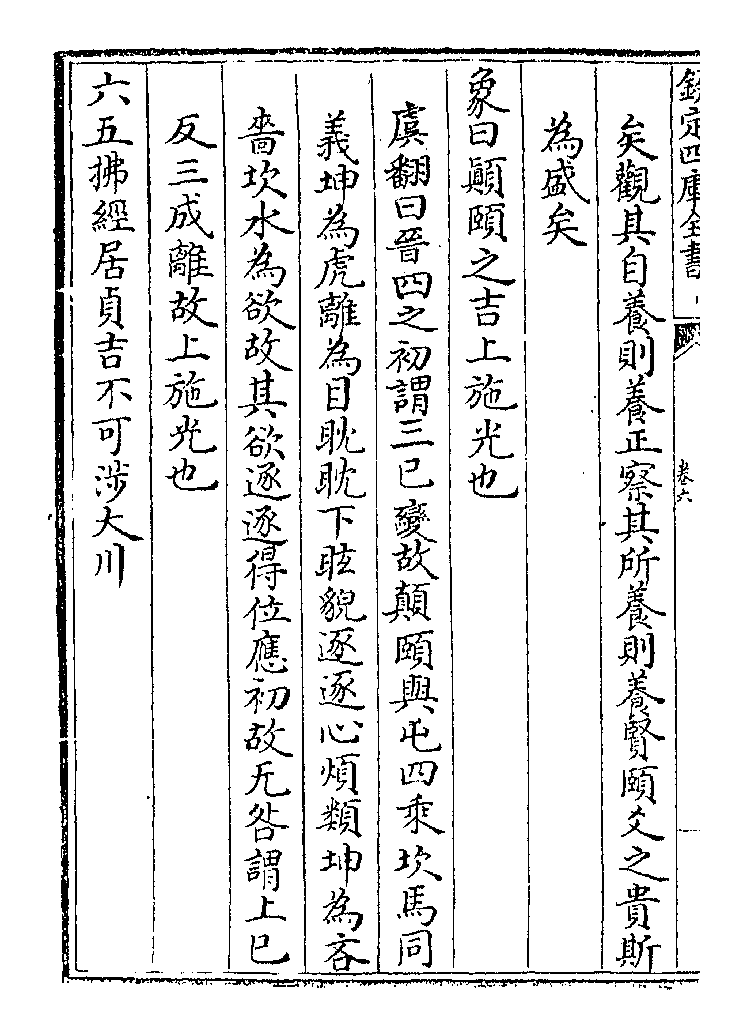 欽定四庫全書
卷六
矣觀其自養則養正察其所養則養賢頤爻之貴斯
為盛矣
象曰顚頤之吉上施光也
虞翻曰晉四之初謂三已變故顛頤與屯四乘坎馬同
義坤為虎離為目眈眈下眩貌逐逐心煩類坤為吝
嗇坎水為欲故其欲逐逐得位應初故无咎謂上已
反三成離故上施光也
六五拂經居貞吉不可涉大川